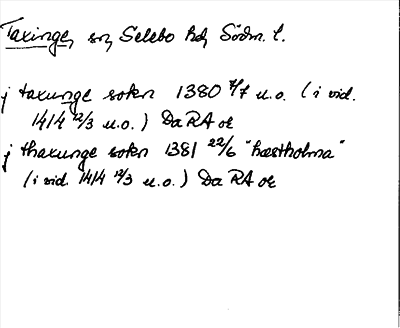 Taxinge, sn, Selebo hd, Södm. l.
j taxunge sokn 1380 7/7 u.o. (i vid.
1414 12/3 u.o.) Da RA or
j thaxunge sokn 1381 22/6 "hæstholma"
(i vid. 1414 12/3 u.o.) Da RA or